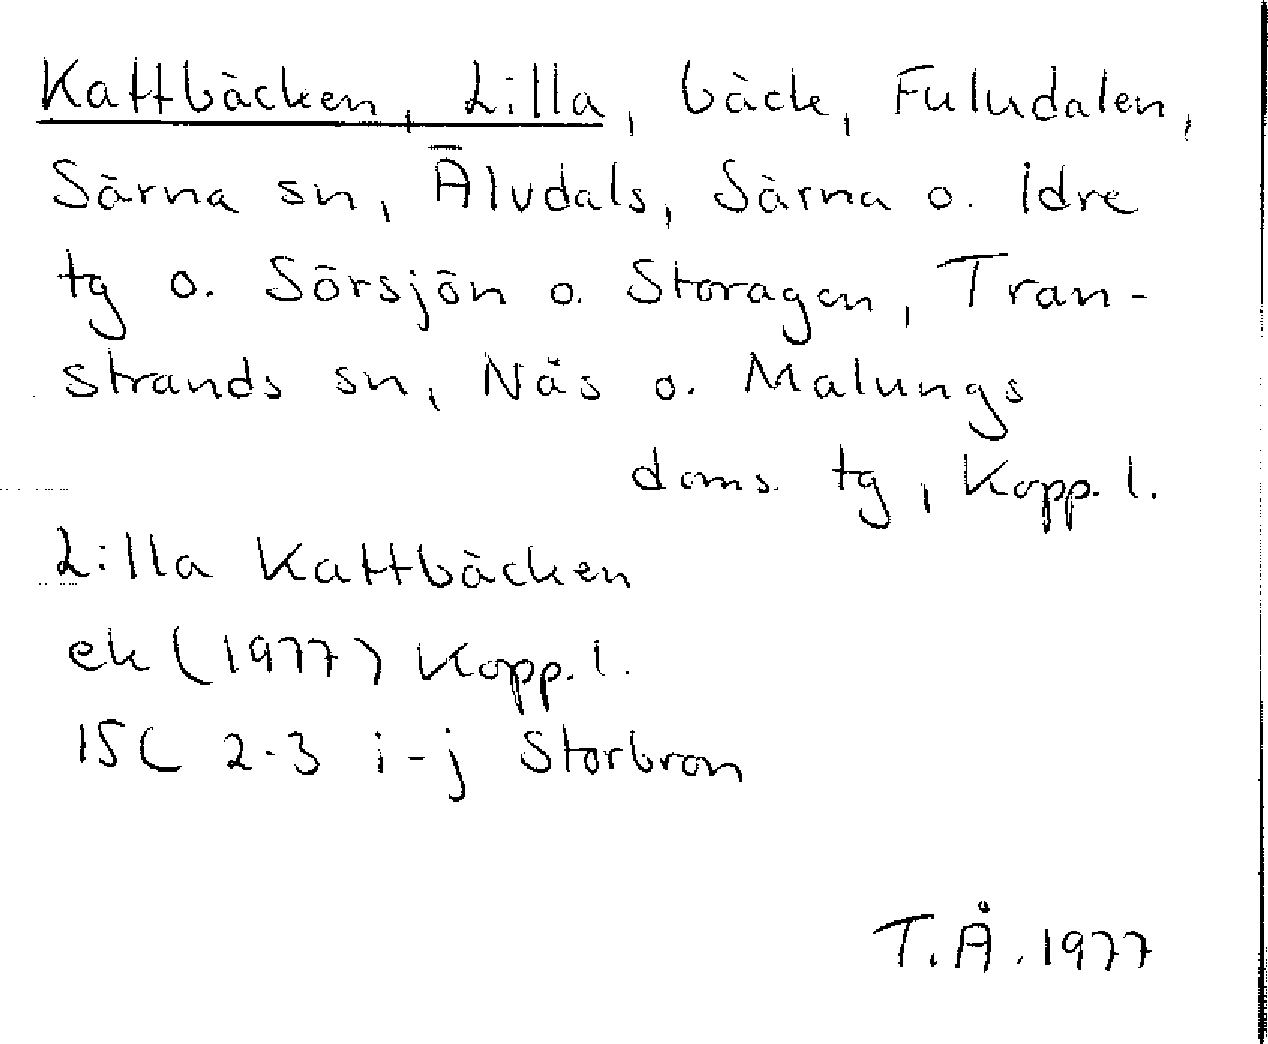 Kattbäcken, Lilla, bäck, Fuludalen,
Särna sn, Älvdals, Särna o. Idre
tg o. Sörsjön o. Storagen, Tran-
strands sn, Näs o. Malungs
doms. tg, Kopp. l.
Lilla Kattbäcken
ek (1977) Kopp. l.
15C 2-3 i-j Storbron
T.Å. 1977